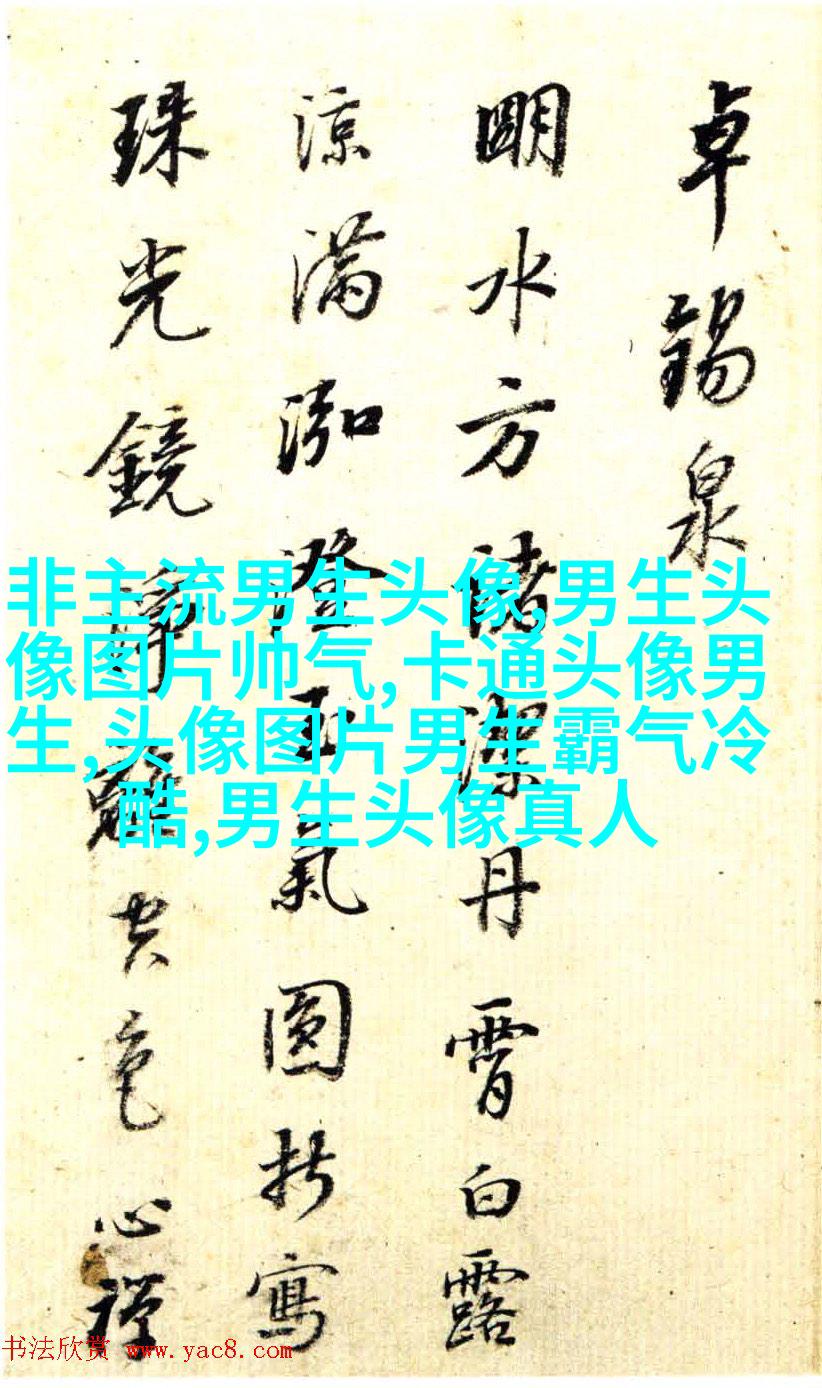 卓錫泉
明水方諸潔丹霄白露
涼滿泓澄玉氣圓折寫
珠光鏡淨聲共色心禪
非主流男生头像,男生头
像图片帅气,卡通头像男
生,头像图片男生霸气冷
酷,男生头像真人
书法欣赏 www.yac8.com